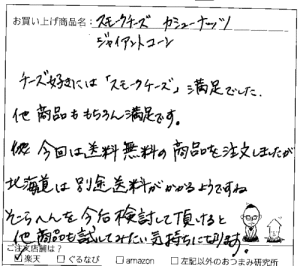 お買い上げ商品名：スモークチーズ カシューナッツ
ジャイアントコーン
チーズ好きには「スモークチーズ」満足でした.
他商品ももちろん満足です。
今回は送料無料の商品を注文しましたが
北海道は別途送料がかかるようですね
そこらへんを今后検討して頂けると
他商品も試してみたい気持ちになります。
ご注文店舗は？
☑楽天 □ぐるなび □amazon □左記以外のおつまみ研究所